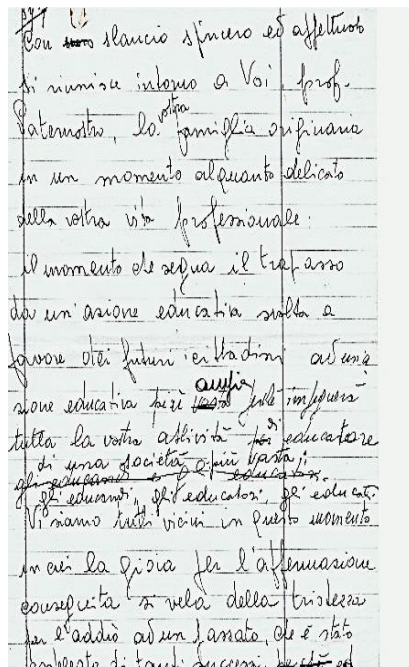 Con slancio sincero ed affettuoso
si riunisce intorno a Voi, prof.
Paternostro, la vostra famiglia originaria
in un momento alquanto delicato
della vostra vita professionale:
il momento che segna il trapasso
da un'azione educativa svolta a
favore dei futuri cittadini ad una
zione educativa più ampia che impegnerà
tutta la vostra attività di educatore
di una società più vasta:
gli educandi, gli educatori, gli educati.
Vi siamo tutti vicini in questo momento
in cui la gioia per l'affermazione
conseguita si vela della tristezza
per l'addio ad un passato, che è stato
di tanti successi ed